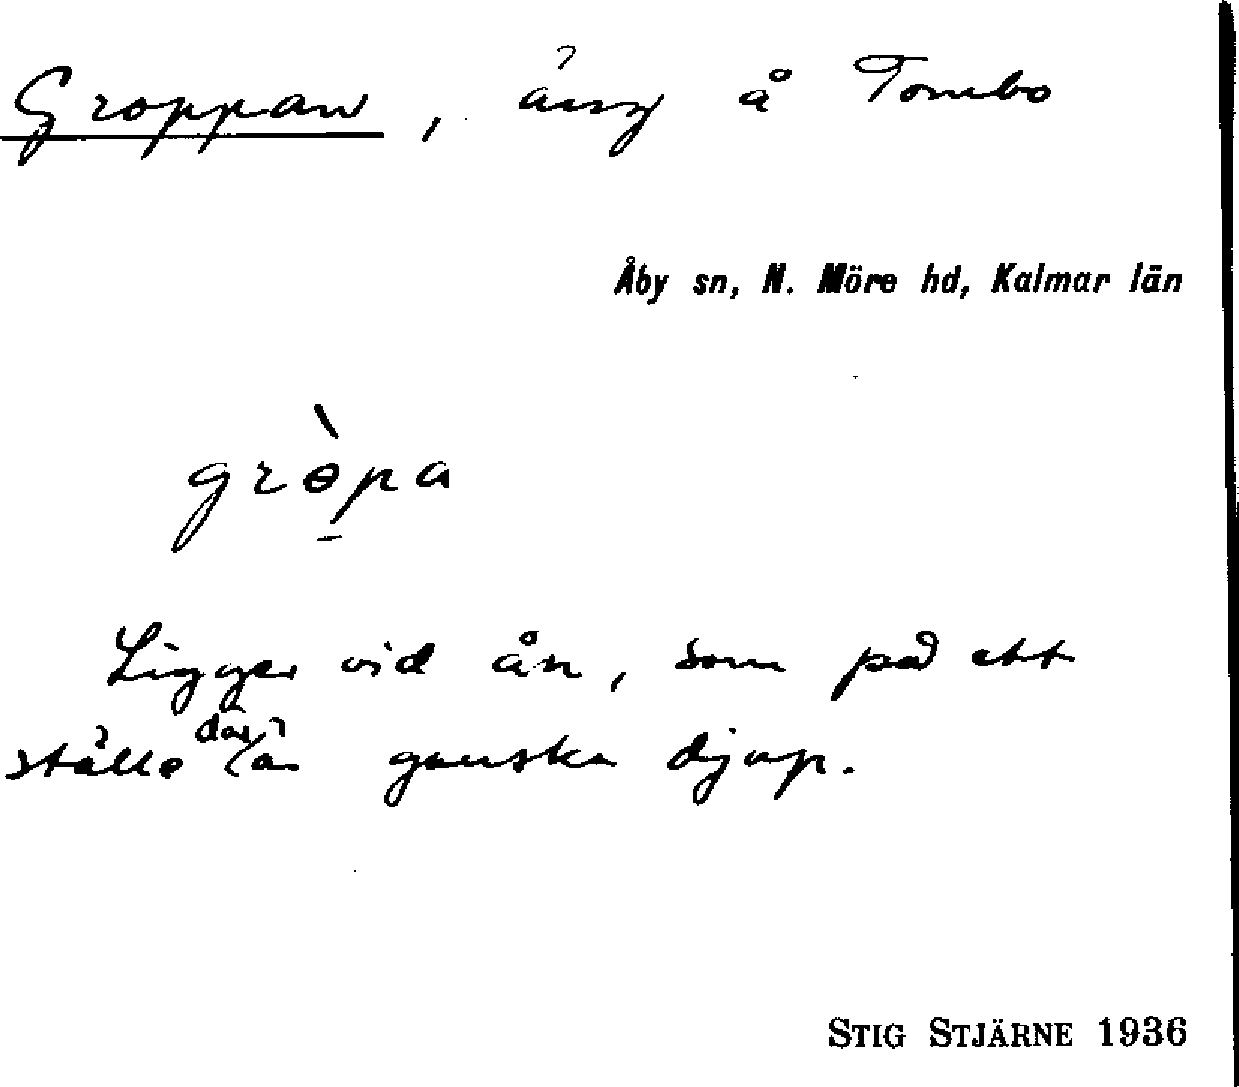 Groppan, äng å Tombo
Åby sn, N. Möre hd, Kalmar län
grɵ̀pa
Ligger vid ån, som på ett
ställe där är ganska djup.
STIG STJÄRNE 1936